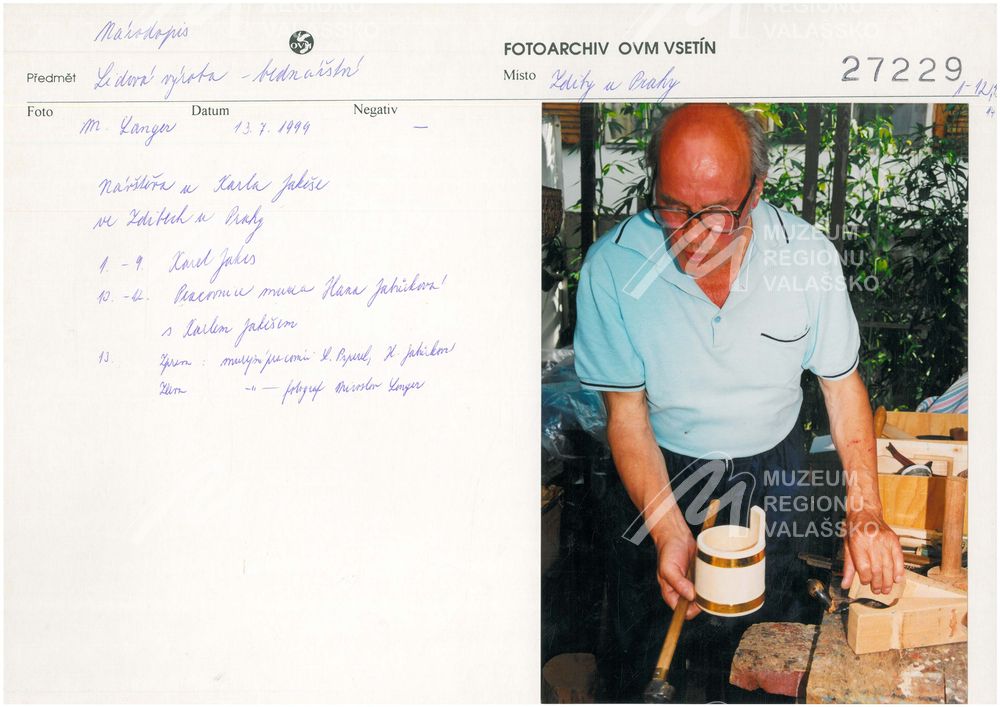 Národopis
OVM
FOTOARCHIV OVM VSETÍN
Předmět Lidová výroba - bednářství
Místo Zdiby u Prahy
27229
Foto Datum Negativ
M. Langer 13. 7. 1999 —
Návštěva u Karla Jakeše
ve Zdibech u Prahy
1. - 9. Karel Jakeš
10. - 12. Pracovnice muzea Hana Jabůrková
s Karlem Jakešem
13. Zprava: muzejní pracovníci H. Jabůrková
Zleva —"— fotograf Miroslav Langer
MUZEUM
REGIONU
VALAŠSKO
MUZEUM
REGIONU
VALAŠSKO
MUZEUM
REGIONU
VALAŠSKO
REGIONU
VALAŠSKO
REGIONU
VALAŠSKO